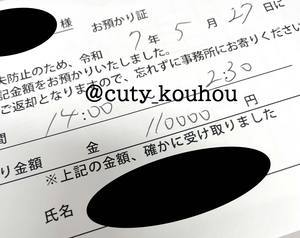 様 お預かり証
未防止のため、令和 7年 5月 27日に
記金額をお預かりいたしました。
ご返却となりますので、忘れずに事務所にお寄りください
@cuty_kouhou
間 14:00 2:30
り金額 金 110000 円
※上記の金額、確かに受け取りました
氏名